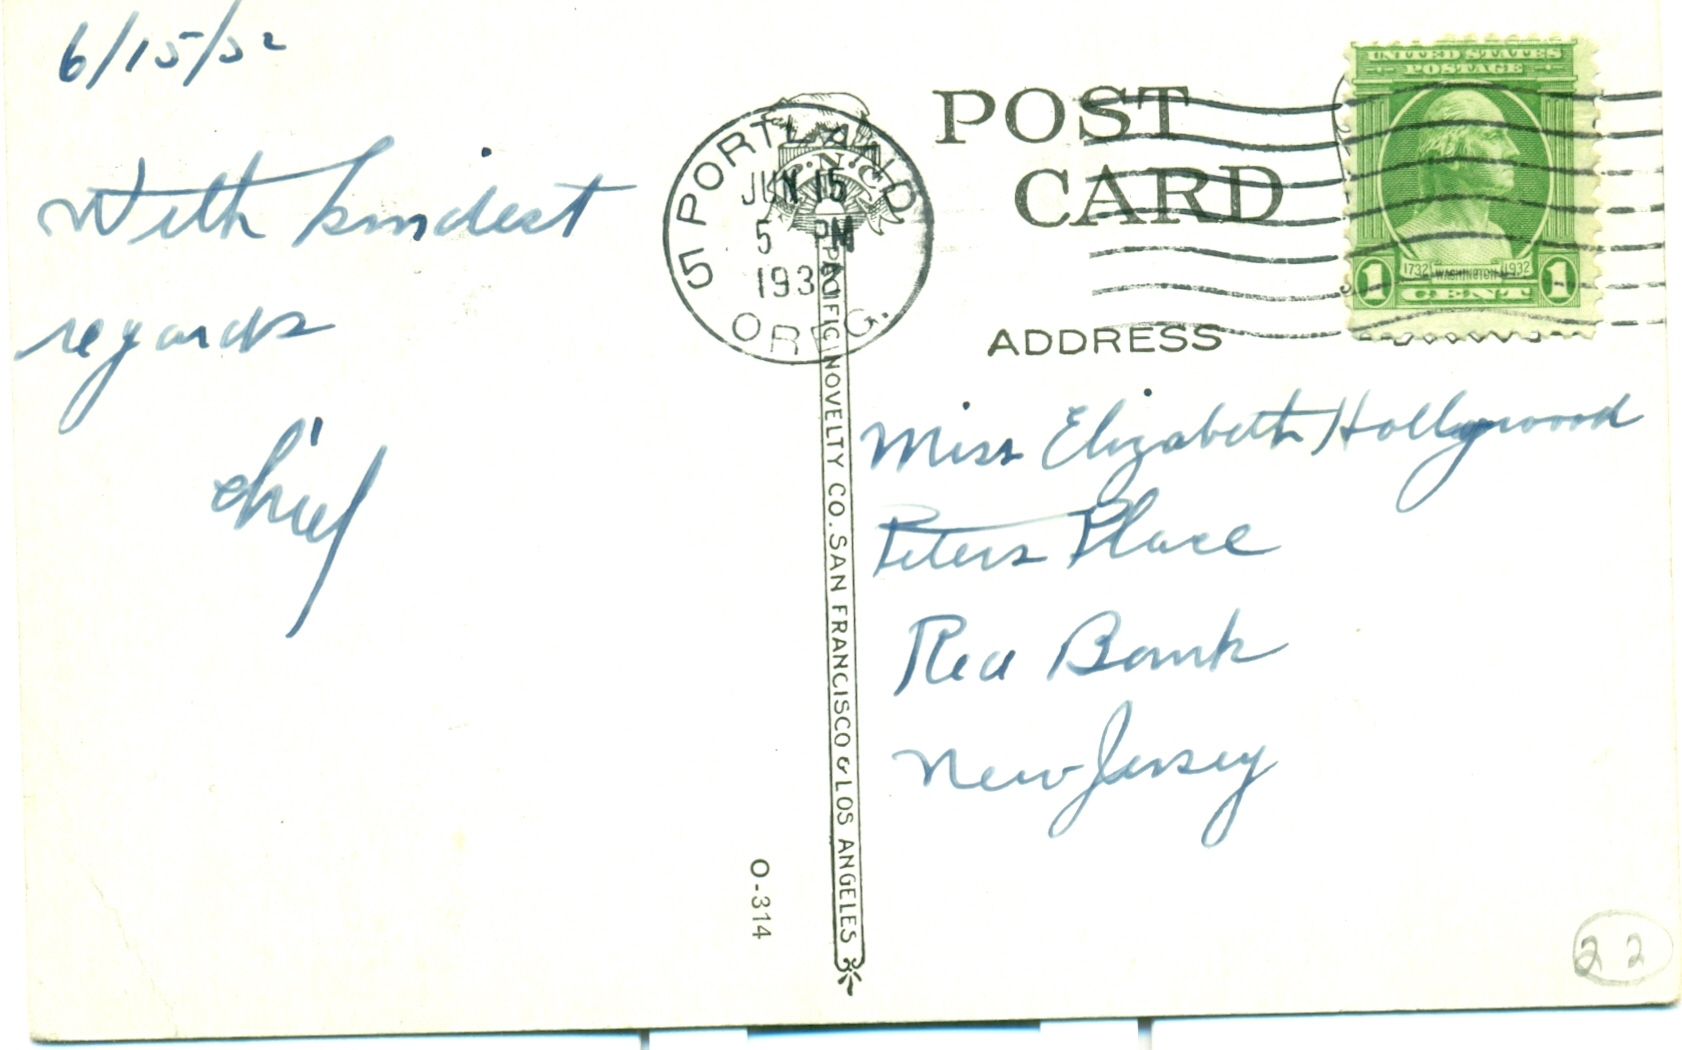 6/15/32
With kindest
regards
Chief
5 PORTLAND
JUN 15
5 PM
193
OREG.
POST
CARD
ADDRESS
UNITED STATES
POSTAGE
1732 WASHINGTON 1932
1 CENT 1
Miss Elizabeth Hollywood
Peters Place
Red Bank
New Jersey
P.N.CO.
PACIFIC NOVELTY CO. SAN FRANCISCO & LOS ANGELES
O-314
22